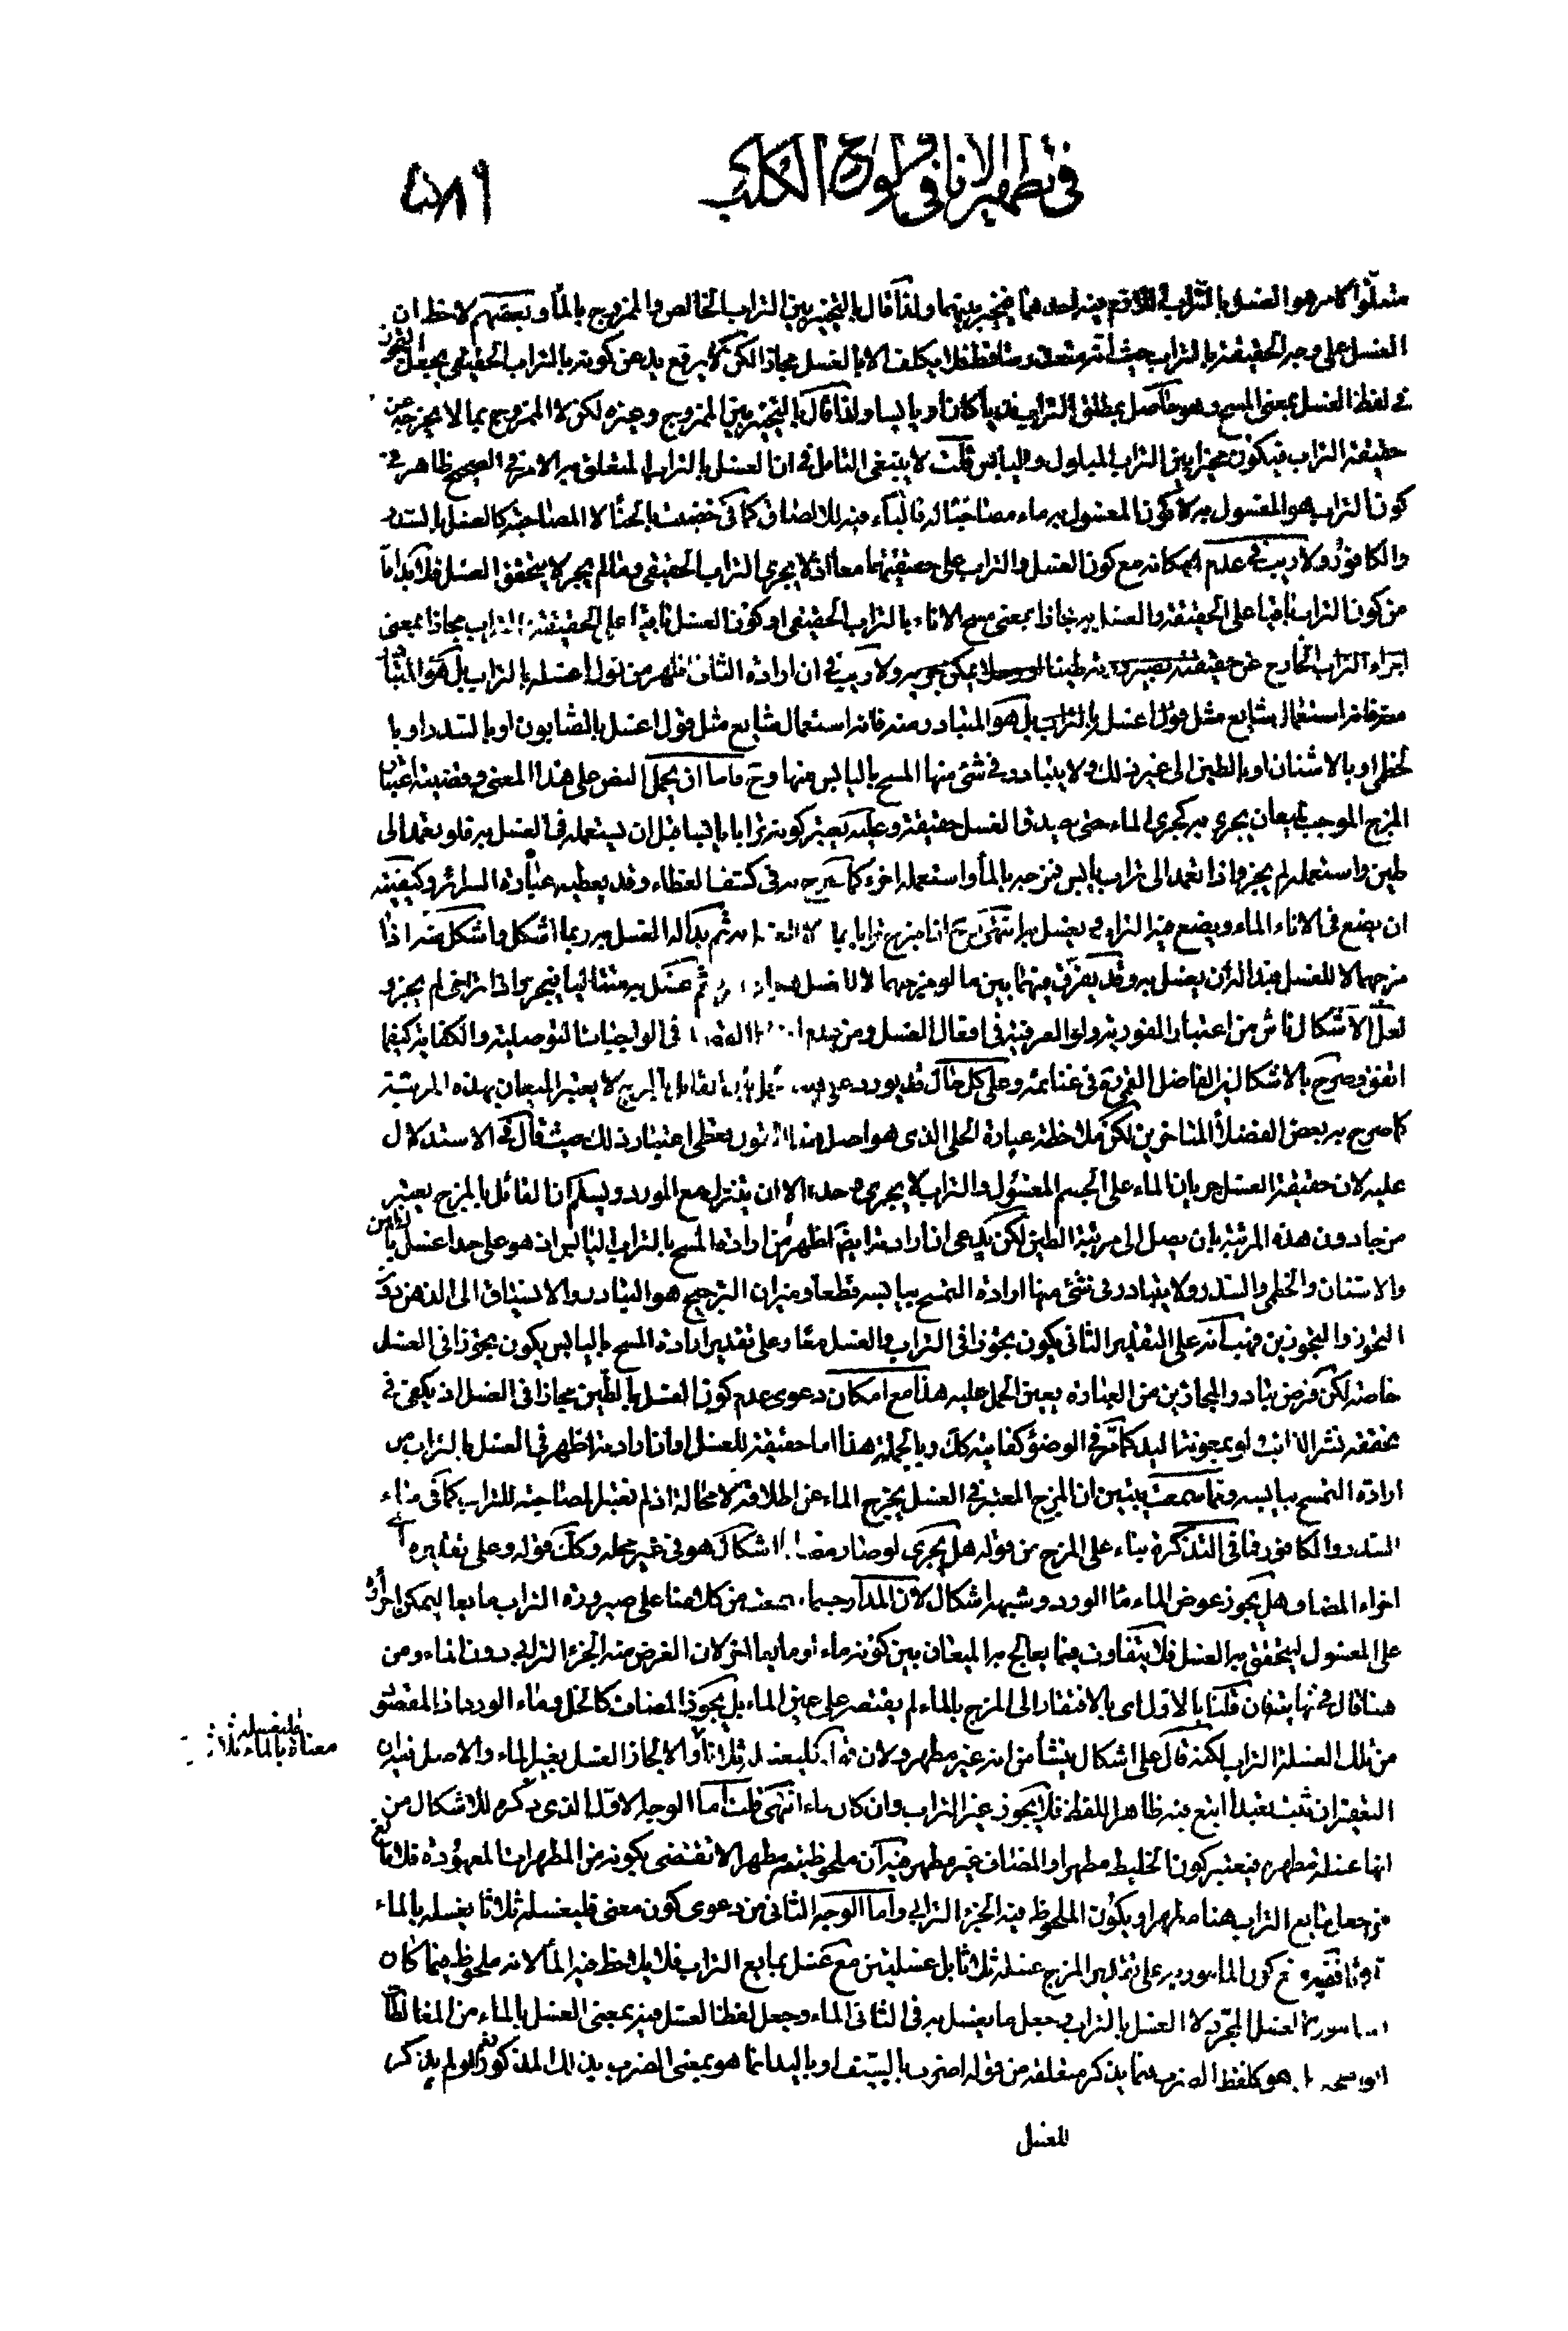 في تطهير الاناء في ولوغ الكلب
متعلق الامر هو الغسل بالتراب في الواقع بينه احدهما فيخير بينهما ولذا قال بالتخيير بين التراب الخالص والممزوج بالماء وبعضهم لاحظ ان
الغسل على وجه الحقيقة بالتراب حيث انه متعذر فلا يكلف الا بالغسل مجازا لكن لا يرفع يد عن كونه بالتراب الحقيقي بجعل التجوز
في لفظ الغسل بمعنى المسح وهو حاصل بمطلق التراب كان او يابسا ولذا قال بالتخيير بين الممزوج وغيره لكن لا الممزوج بما لا يخرجه عن
حقيقة التراب فيكون مخيرا بين التراب المبلول واليابس قلت لا ينبغي التامل في ان الغسل بالتراب المتعلق به الامر في الصحيح ظاهر في
كون التراب هو المغسول به لا كون المغسول به ماء مصاحبا له فالباء فيه للالصاق كما في خضبت بالحناء لا المصاحبة كالغسل بالسدر
والكافور ولا ريب في عدم امكانه مع كون الغسل والتراب على حقيقتهما معا اذ لا يجري التراب الحقيقي وما لم يجر لا يتحقق الغسل فلا بد اما
من كون التراب باقيا على الحقيقة والغسل به مجازا بمعنى مسح الاناء بالتراب الحقيقي او كون الغسل باقيا على الحقيقة والتراب مجازا بمعنى
اجزاء التراب الخارج عن حقيقته بصيرورته طينا يمكن ولا ريب في ان ارادة الثاني اظهر من قول اغسله بالتراب بل هو المتبادر
فانه استعمال شايع مثل قول اغسل بالتراب بل هو المتبادر منه فانه استعمال شايع مثل قول اغسل بالصابون او بالسدر او با
لخطمي او بالاشنان او بالطين الى غير ذلك ولا يتبادر في شئ منها المسح باليابس منها وح فاما ان يحمل النص على هذا المعنى وقضيته اعتبار
المزج الموجب لميعان يجري به كجري الماء حتى يصدق الغسل حقيقة وعليه يعتبر كونه ترابا يابسا قبل ان يستعمله في الغسل به فلو تعمد الى
طين واستعمله لم يجز واذا تعمد الى تراب يابس فمزجه بالماء واستعمله اجزء كما صرح به في كشف الغطاء وقد يعطيه عبارة السرائر وكيفيته
ان يضع في الاناء الماء ويضع فيه التراب ويغسل به انتهى نعم اذا مزج ترابا بماء ثم بدا له الغسل به ربما اشكل واشكل منه اذا
مزجهما لا للغسل فبدا له أن يغسل به وقد يفرق بينهما بين ما لو مزجهما ثم غسل به متتاليا فيجزي واذا تراخى لم يجز و
لعل الاشكال ناش من اعتبار الفورية ولو العرفية في افعال الغسل ومن عدم في الواجبات التوصلية والكفاية كيفما
اتفق وصرح بالاشكال فيه الفاضل القمي في غنائمه وعلى كل حال قد يورد عليه القائل بالمزج لا يعتبر الميعان بهذه المرتبة
كما صرح به بعض الفضلاء المتاخرين لكن ملاحظة عبارة الحلي الذي هو اصل هذا القول يعطي اعتبار ذلك حيث قال في الاستدلال
عليه لان حقيقة الغسل جريان الماء على الجسم المغسول والتراب لا يجري وحده الا ان يتنزل مع المورد ويسلم ان القائل بالمزج يعتبر
مزجا دون هذه المرتبة بان يصل الى مرتبة الطين لكن يدعى ان ارادته ايضا اظهر من ارادة المسح بالتراب اليابس اذ هو على حد اغسل بالصابون
والاشنان والخطمي والسدر ولا يتبادر في شئ منها ارادة التمسح بيابسه قطعا وميزان الترجيح هو التبادر والانسباق الى الذهن دون
التجوز والتجوزين فهب انه على التقدير الثاني يكون تجوزا في التراب والغسل معا وعلى تقدير ارادة المسح باليابس يكون تجوزا في الغسل
خاصة لكن فرض تبادر المجازين من العبارة يعين الحمل عليه هذا مع امكان دعوى عدم كون الغسل بالطين مجازا في الغسل اذ يكفي في
تحققه نشر الاناء ولو بمعونة اليد كما مر في الوضوء كفايته كك وبالجملة هذا اما حقيقة للغسل او ان ارادته اظهر في الغسل بالتراب من
ارادة التمسح بيابسه ومما سمعت يتبين ان المزج المعتبر في الغسل يخرج الماء عن اطلاقه لا محالة اذ لم نعتبر المصاحبة للتراب كما في ماء
السدر والكافور فما في التذكرة بناء على المزج من قوله هل يجري لو صار مضافا اشكال هو في غير محله وكك قوله وعلى تقديره اي
اجزاء المضاف هل يجوز عوض الماء ماء الورد وشبهه اشكال لان المدار حسبما سمعت من كلامنا على صيرورة التراب مايعا ليمكن اجراؤه
على المغسول ليتحقق به الغسل فلا يتفاوت فيما يعالج به الميعان بين كونه ماء او مايعا اخر لان الغرض منه الجزء الترابي دون الماء ومن
هنا قال في نهايته فان قلنا بالاول اى بالافتقار الى المزج بالماء لم يقتصر على عين الماء بل يجوز المضاف كالخل وماء الورد اذ المقصود
من تلك الغسلة التراب لكنه قال على اشكال ينشأ من انه غير مطهر ولان قوله فليغسله ثلاثا والا لجاز الغسل بغير الماء والاصل فيه ان
التعفير ان ثبت تعبدا اتبع فيه ظاهر اللفظ فلا يجوز غير التراب وان كان ماء انتهى قلت اما الوجه الاول الذي ذكره للاشكال من
انها غسلة مطهرة فيعتبر كون الخليط مطهرا والمضاف غير مطهر فيه ان ملحوظيته مطهرا لا تقتضى بكونه من المطهرات المعهودة فلا مانع
من جعل مايع التراب هنا مطهرا ويكون الملحوظ فيه الجزء الترابي واما الوجه الثاني من دعوى كون معنى فليغسله ثلاثا يغسله بالماء
ثلاثا ففيه منع كون المامور به على تقدير المزج غسله ثلاثا بل غسلتين مع غسل بمايع التراب فلا يلاحظ فيه الماء لانه ملحوظ فيما كان
المامور به الغسل المجرد لا الغسل بالتراب وجعل ما يغسل به في الثاني الماء وجعل لفظ الغسل فيه بمعنى الغسل بالماء من المغالطات
الواضحة بل هو كلفظ الضرب فيما يذكر متعلقه من قوله اضرب بالسيف او باليد انما هو بمعنى الضرب بذلك المذكور نعم لو لم يذكر
للغسل
فليغسله
معناه بالماء ثلاثا